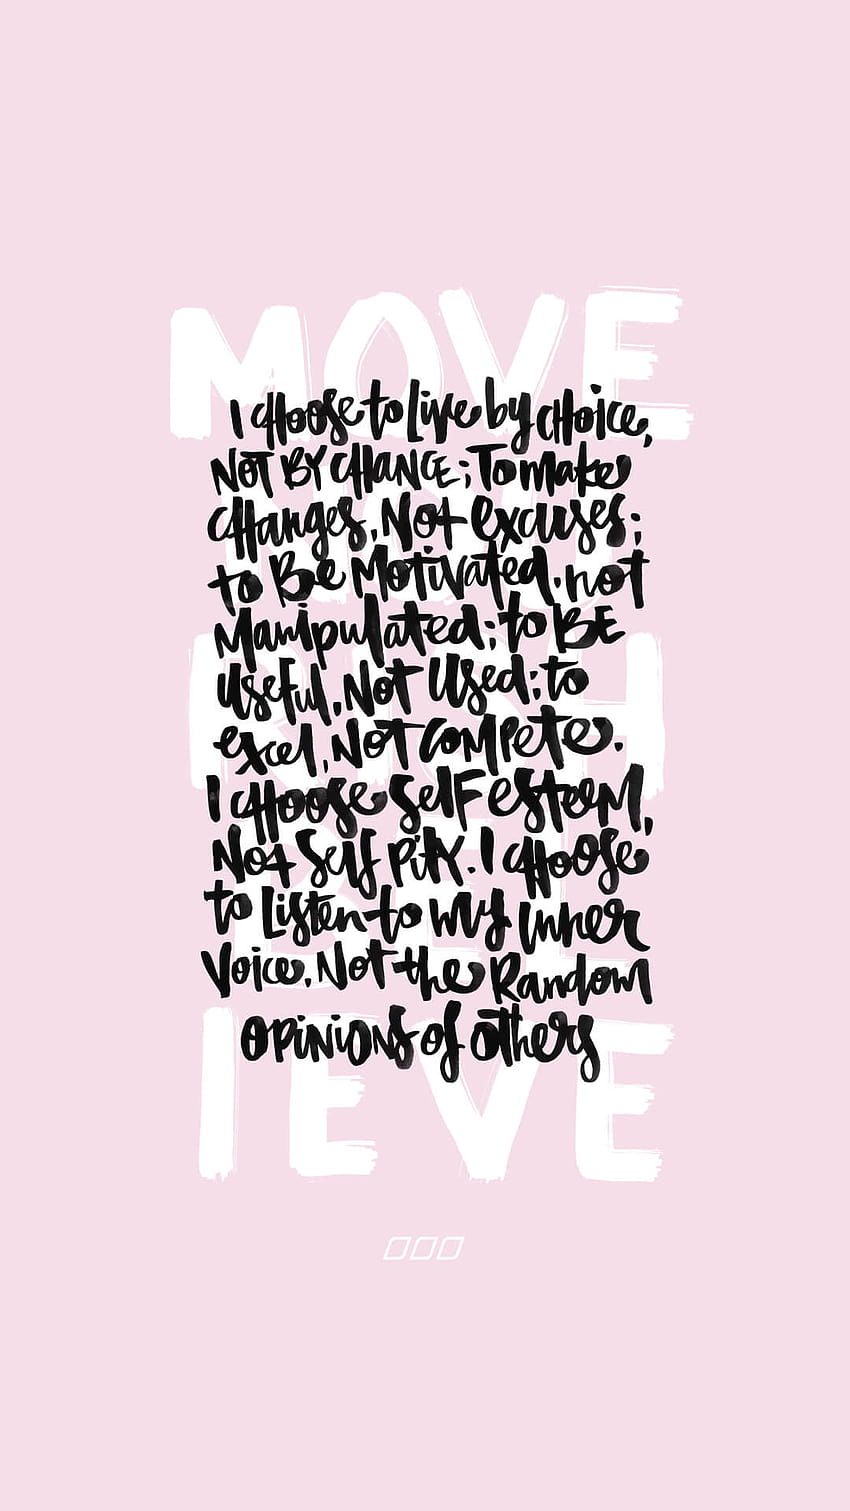 MOVE
NOU
RISH
BEL
IEVE
I CHOOSE to Live by CHOice,
NOT BY CHANCE; To make
CHanges, Not excuses;
to Be Motivated, not
Manipulated; to BE
Useful, Not Used; to
excel, NOT COMPete.
I CHOOSE Self esteem,
Not Self Pity. I CHOOSe
to Listen to My Inner
Voice, Not the Random
OPINIONS of others